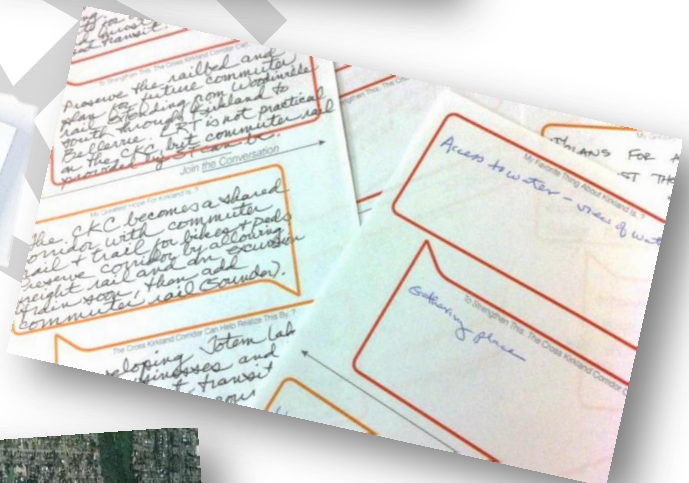 Transit.
To Strengthen This, The Cross Kirkland Corridor Can
Preserve the railbed and
plan for future commuter
rail extending from Woodinville
south through Kirkland to
Bellevue. LRT is not practical
on the CKC, but commuter rail
provided by ST can be.
Join the Conversation
My Greatest Hope For Kirkland Is..?
The CKC becomes a shared
corridor with commuter
rail + trail for bikes + peds
Preserve corridor by allowing
freight rail and an excursion
train soon, then add
commuter rail (Sounder).
The Cross Kirkland Corridor Can Help Realize This By..?
eloping Totem Lak
sinesses and
transit
My Favorite Thing About Kirkland Is..?
Access to water - view of wat
To Strengthen This, The Cross Kirkland Corridor C
Gathering place
FOR
ST TH